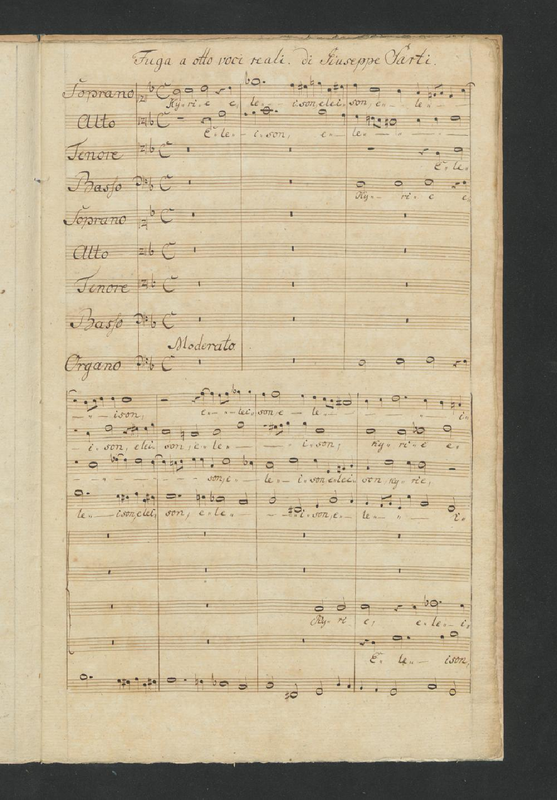 Fuga a otto voci reali. di Giuseppe Sarti.
Soprano
Ky-ri-e e-le-ison, elei-son, e-le-
Alto
E-le-ison, e-le-
Tenore
E-le-
Basso
Ky-ri-e e-
Soprano
Alto
Tenore
Basso
Moderato
Organo
ison, e-lei-son, e-le-i-
i-son, elei-son, e-le-i-son, Ky-ri-e e-
son, e-le-i-son, elei-son, Ky-rie,
le-ison, elei-son, e-le-i-son, e-le-i-
Ky-ri-e, e-le-i-
E-le-ison,